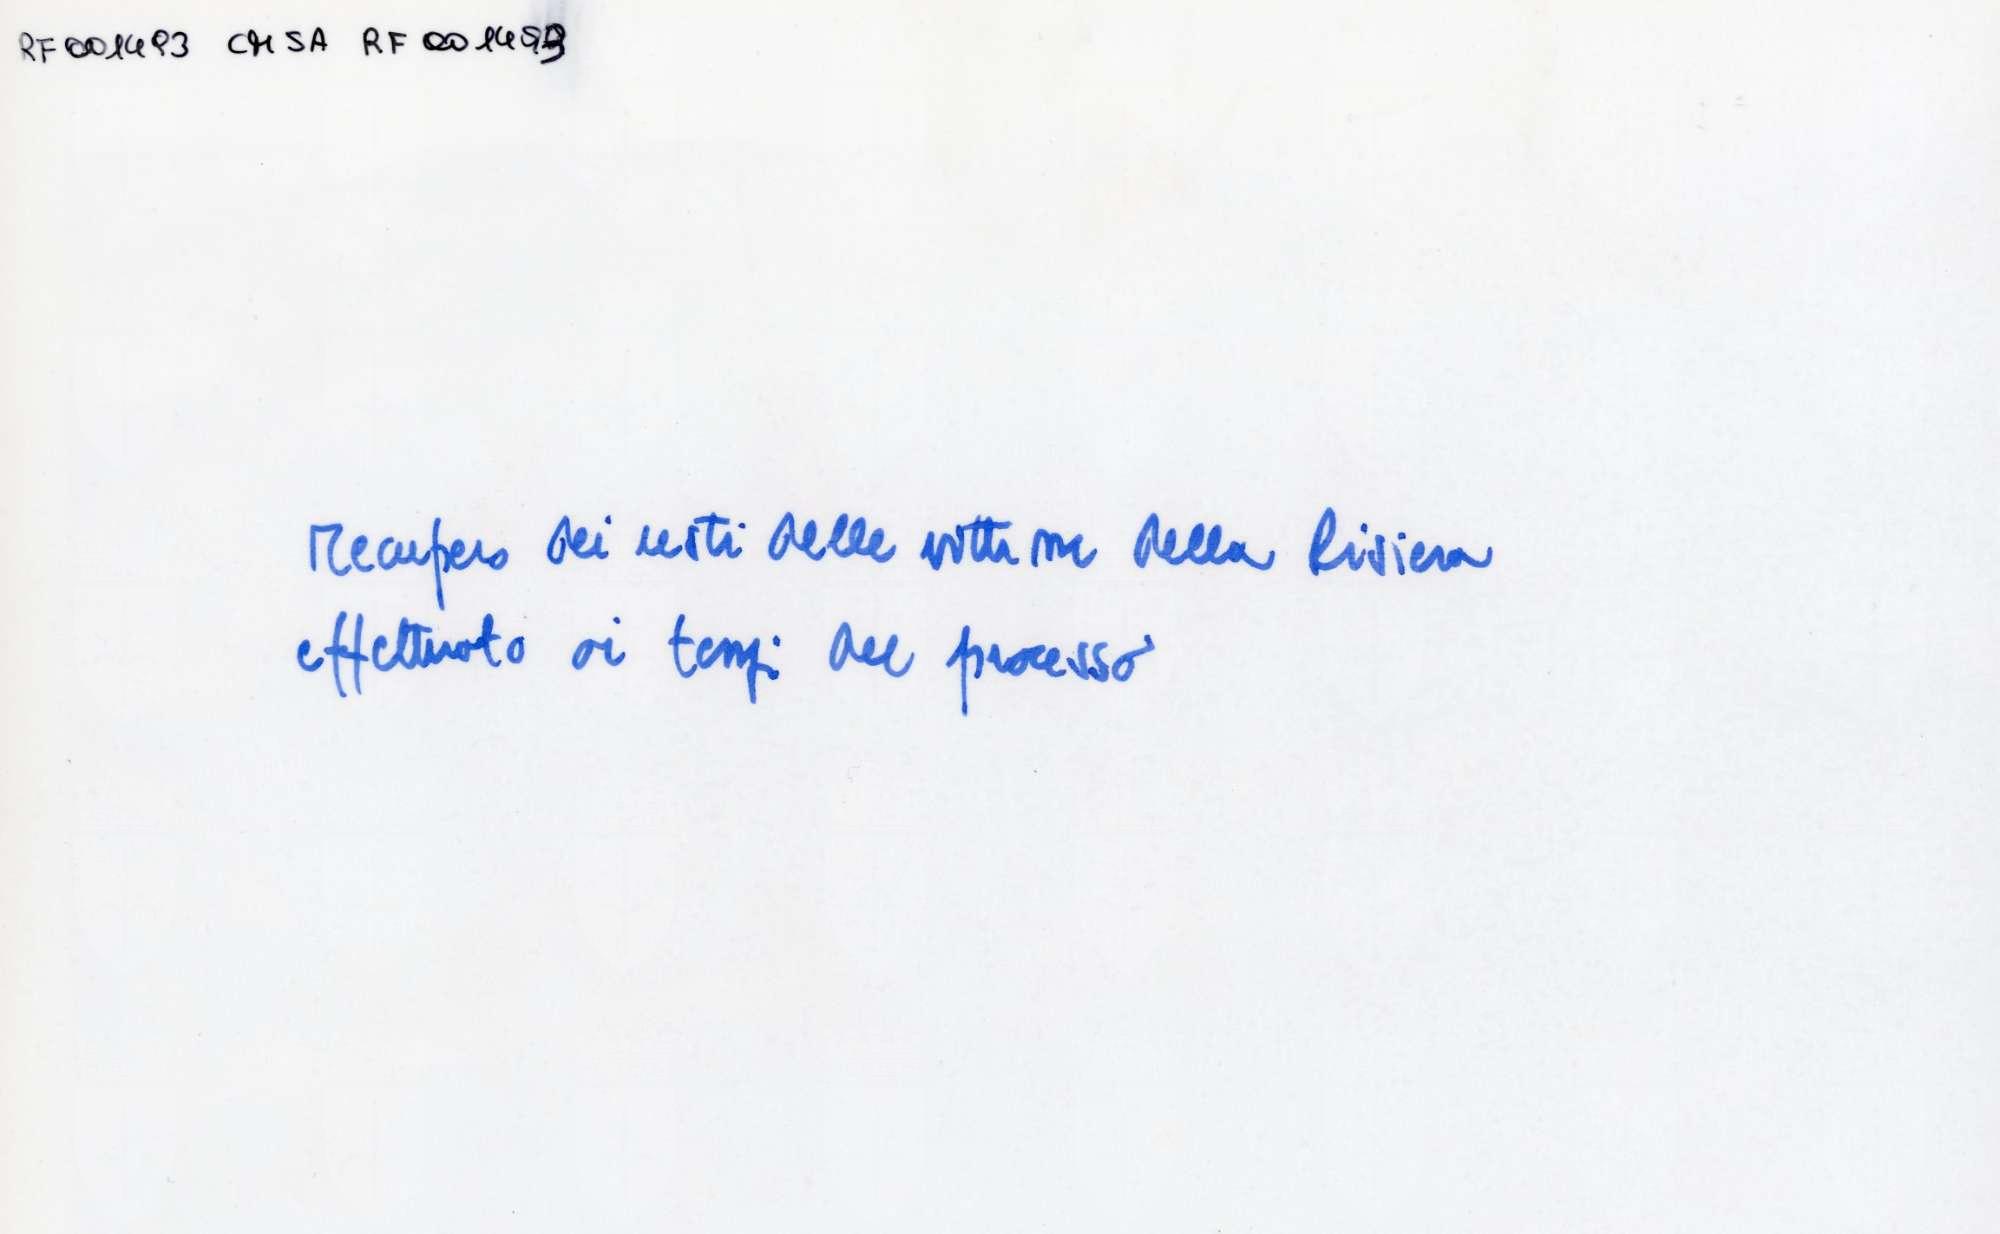 RF001493 CMSA RF001493
Recupero dei resti delle vittime della Risiera
effettuato ai tempi del processo